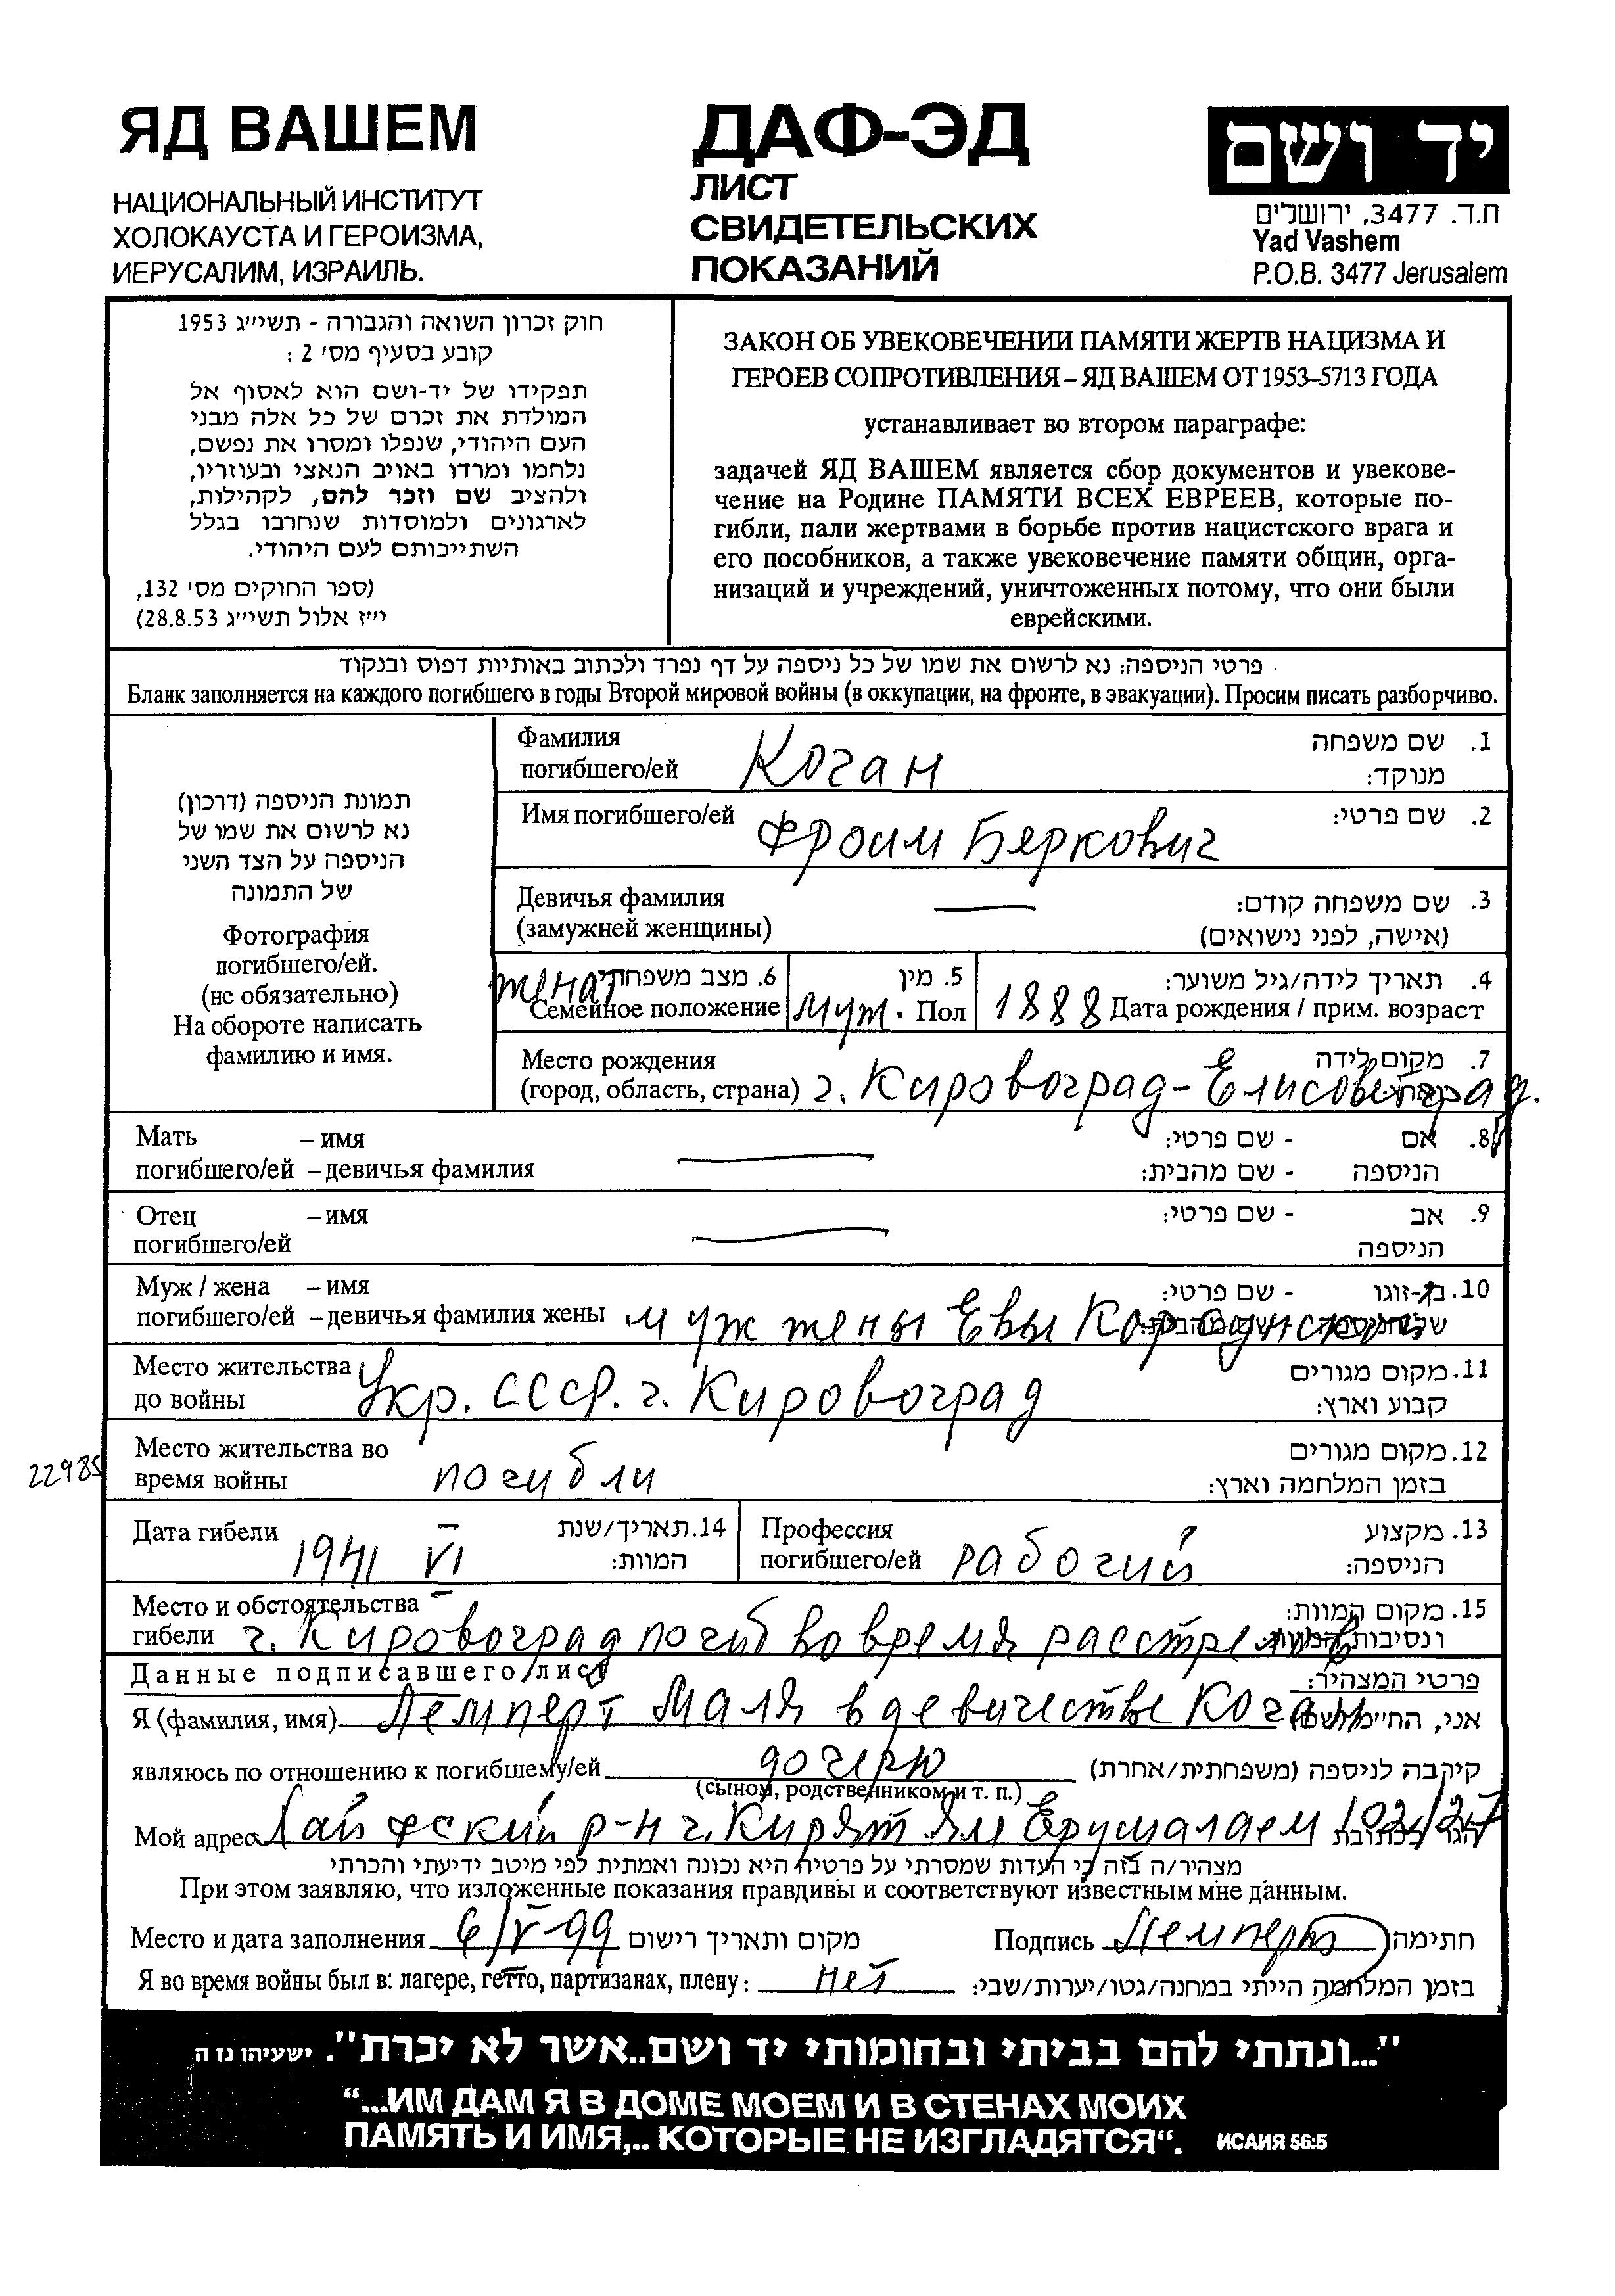 ЯД ВАШЕМ
НАЦИОНАЛЬНЫЙ ИНСТИТУТ
ХОЛОКАУСТА И ГЕРОИЗМА,
ИЕРУСАЛИМ, ИЗРАИЛЬ.
ДАФ-ЭД
ЛИСТ
СВИДЕТЕЛЬСКИХ
ПОКАЗАНИЙ
יד ושם
ת.ד. 3477, ירושלים
Yad Vashem
P.O.B. 3477 Jerusalem
חוק זכרון השואה והגבורה - תשי״ג 1953
קובע בסעיף מס׳ 2 :
תפקידו של יד-ושם הוא לאסוף אל
המולדת את זכרם של כל אלה מבני
העם היהודי, שנפלו ומסרו את נפשם,
נלחמו ומרדו באויב הנאצי ובעוזריו,
ולהציב שם וזכר להם, לקהילות,
לארגונים ולמוסדות שנחרבו בגלל
השתייכותם לעם היהודי.
(ספר החוקים מס׳ 132,
י״ז אלול תשי״ג 28.8.53)
ЗАКОН ОБ УВЕКОВЕЧЕНИИ ПАМЯТИ ЖЕРТВ НАЦИЗМА И
ГЕРОЕВ СОПРОТИВЛЕНИЯ – ЯД ВАШЕМ ОТ 1953–5713 ГОДА
устанавливает во втором параграфе:
задачей ЯД ВАШЕМ является сбор документов и увекове-
чение на Родине ПАМЯТИ ВСЕХ ЕВРЕЕВ, которые по-
гибли, пали жертвами в борьбе против нацистского врага и
его пособников, а также увековечение памяти общин, орга-
низаций и учреждений, уничтоженных потому, что они были
еврейскими.
פרטי הניספה: נא לרשום את שמו של כל ניספה על דף נפרד ולכתוב באותיות דפוס ובנקוד
Бланк заполняется на каждого погибшего в годы Второй мировой войны (в оккупации, на фронте, в эвакуации). Просим писать разборчиво.
תמונת הניספה (דרכון)
נא לרשום את שמו של
הניספה על הצד השני
של התמונה
Фотография
погибшего/ей.
(не обязательно)
На обороте написать
фамилию и имя.
Фамилия
погибшего/ей Коган
1. שם משפחה
מנוקד:
Имя погибшего/ей Фроим Беркович
2. שם פרטי:
Девичья фамилия —
(замужней женщины)
3. שם משפחה קודם:
(אישה, לפני נישואים)
женат 6. מצב משפחתי
Семейное положение
5. מין
муж. Пол
4. תאריך לידה/גיל משוער:
1888 Дата рождения / прим. возраст
Место рождения
(город, область, страна) г. Кировоград-Елисоветград.
7. מקום לידה
Мать – имя
погибшего/ей – девичья фамилия —
8. אם - שם פרטי:
הניספה - שם מהבית:
Отец – имя
погибшего/ей —
9. אב - שם פרטי:
הניספה
Муж / жена – имя
погибшего/ей – девичья фамилия жены муж жены Евы
10. בן-זוגו - שם פרטי:
Место жительства
до войны Укр. СССР. г. Кировоград
11. מקום מגורים
קבוע וארץ:
22985
Место жительства во
время войны погибли
12. מקום מגורים
בזמן המלחמה וארץ:
Дата гибели 1941 VI
14. תאריך/שנת
המוות:
Профессия
погибшего/ей рабочий
13. מקצוע
הניספה:
Место и обстоятельства
гибели г. Кировоград погиб во время расстрелов
15. מקום המוות:
ונסיבות המוות:
Данные подписавшего лист
פרטי המצהיר:
Я (фамилия, имя) Лемперт Маля в девичестве Коган אני, הח״מ (שם)
являюсь по отношению к погибшему/ей дочерю קירבה לניספה (משפחתית/אחרת)
(сыном, родственником и т. п.)
Мой адрес Хайфский р-н г. Кирят Ям Ерушалаем 102/27
מצהיר/ה בזה כי העדות שמסרתי על פרטיה היא נכונה ואמתית לפי מיטב ידיעתי והכרתי
При этом заявляю, что изложенные показания правдивы и соответствуют известным мне данным.
Место и дата заполнения 6/V-99 מקום ותאריך רישום Подпись Лемперт חתימה
Я во время войны был в: лагере, гетто, партизанах, плену: нет בזמן המלחמה הייתי במחנה/גטו/יערות/שבי:
״...ונתתי להם בביתי ובחומותי יד ושם..אשר לא יכרת״. ישעיהו נו ה
“...ИМ ДАМ Я В ДОМЕ МОЕМ И В СТЕНАХ МОИХ
ПАМЯТЬ И ИМЯ,.. КОТОРЫЕ НЕ ИЗГЛАДЯТСЯ“. ИСАИЯ 56:5